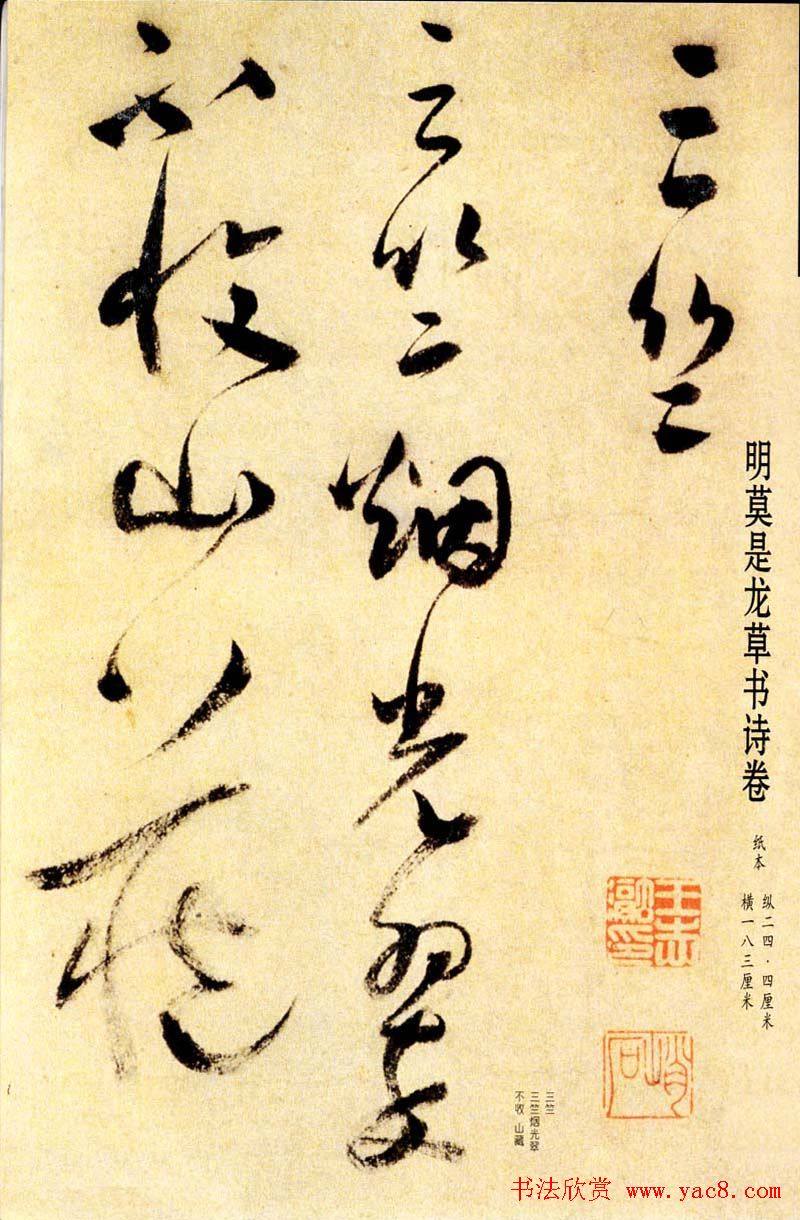 明莫是龙草书诗卷
纸本
纵二四·四厘米
横一八三厘米
三竺
三竺烟光翠
不收山藏
三竺
三竺烟光翠
不收 山藏
书法欣赏 www.yac8.com